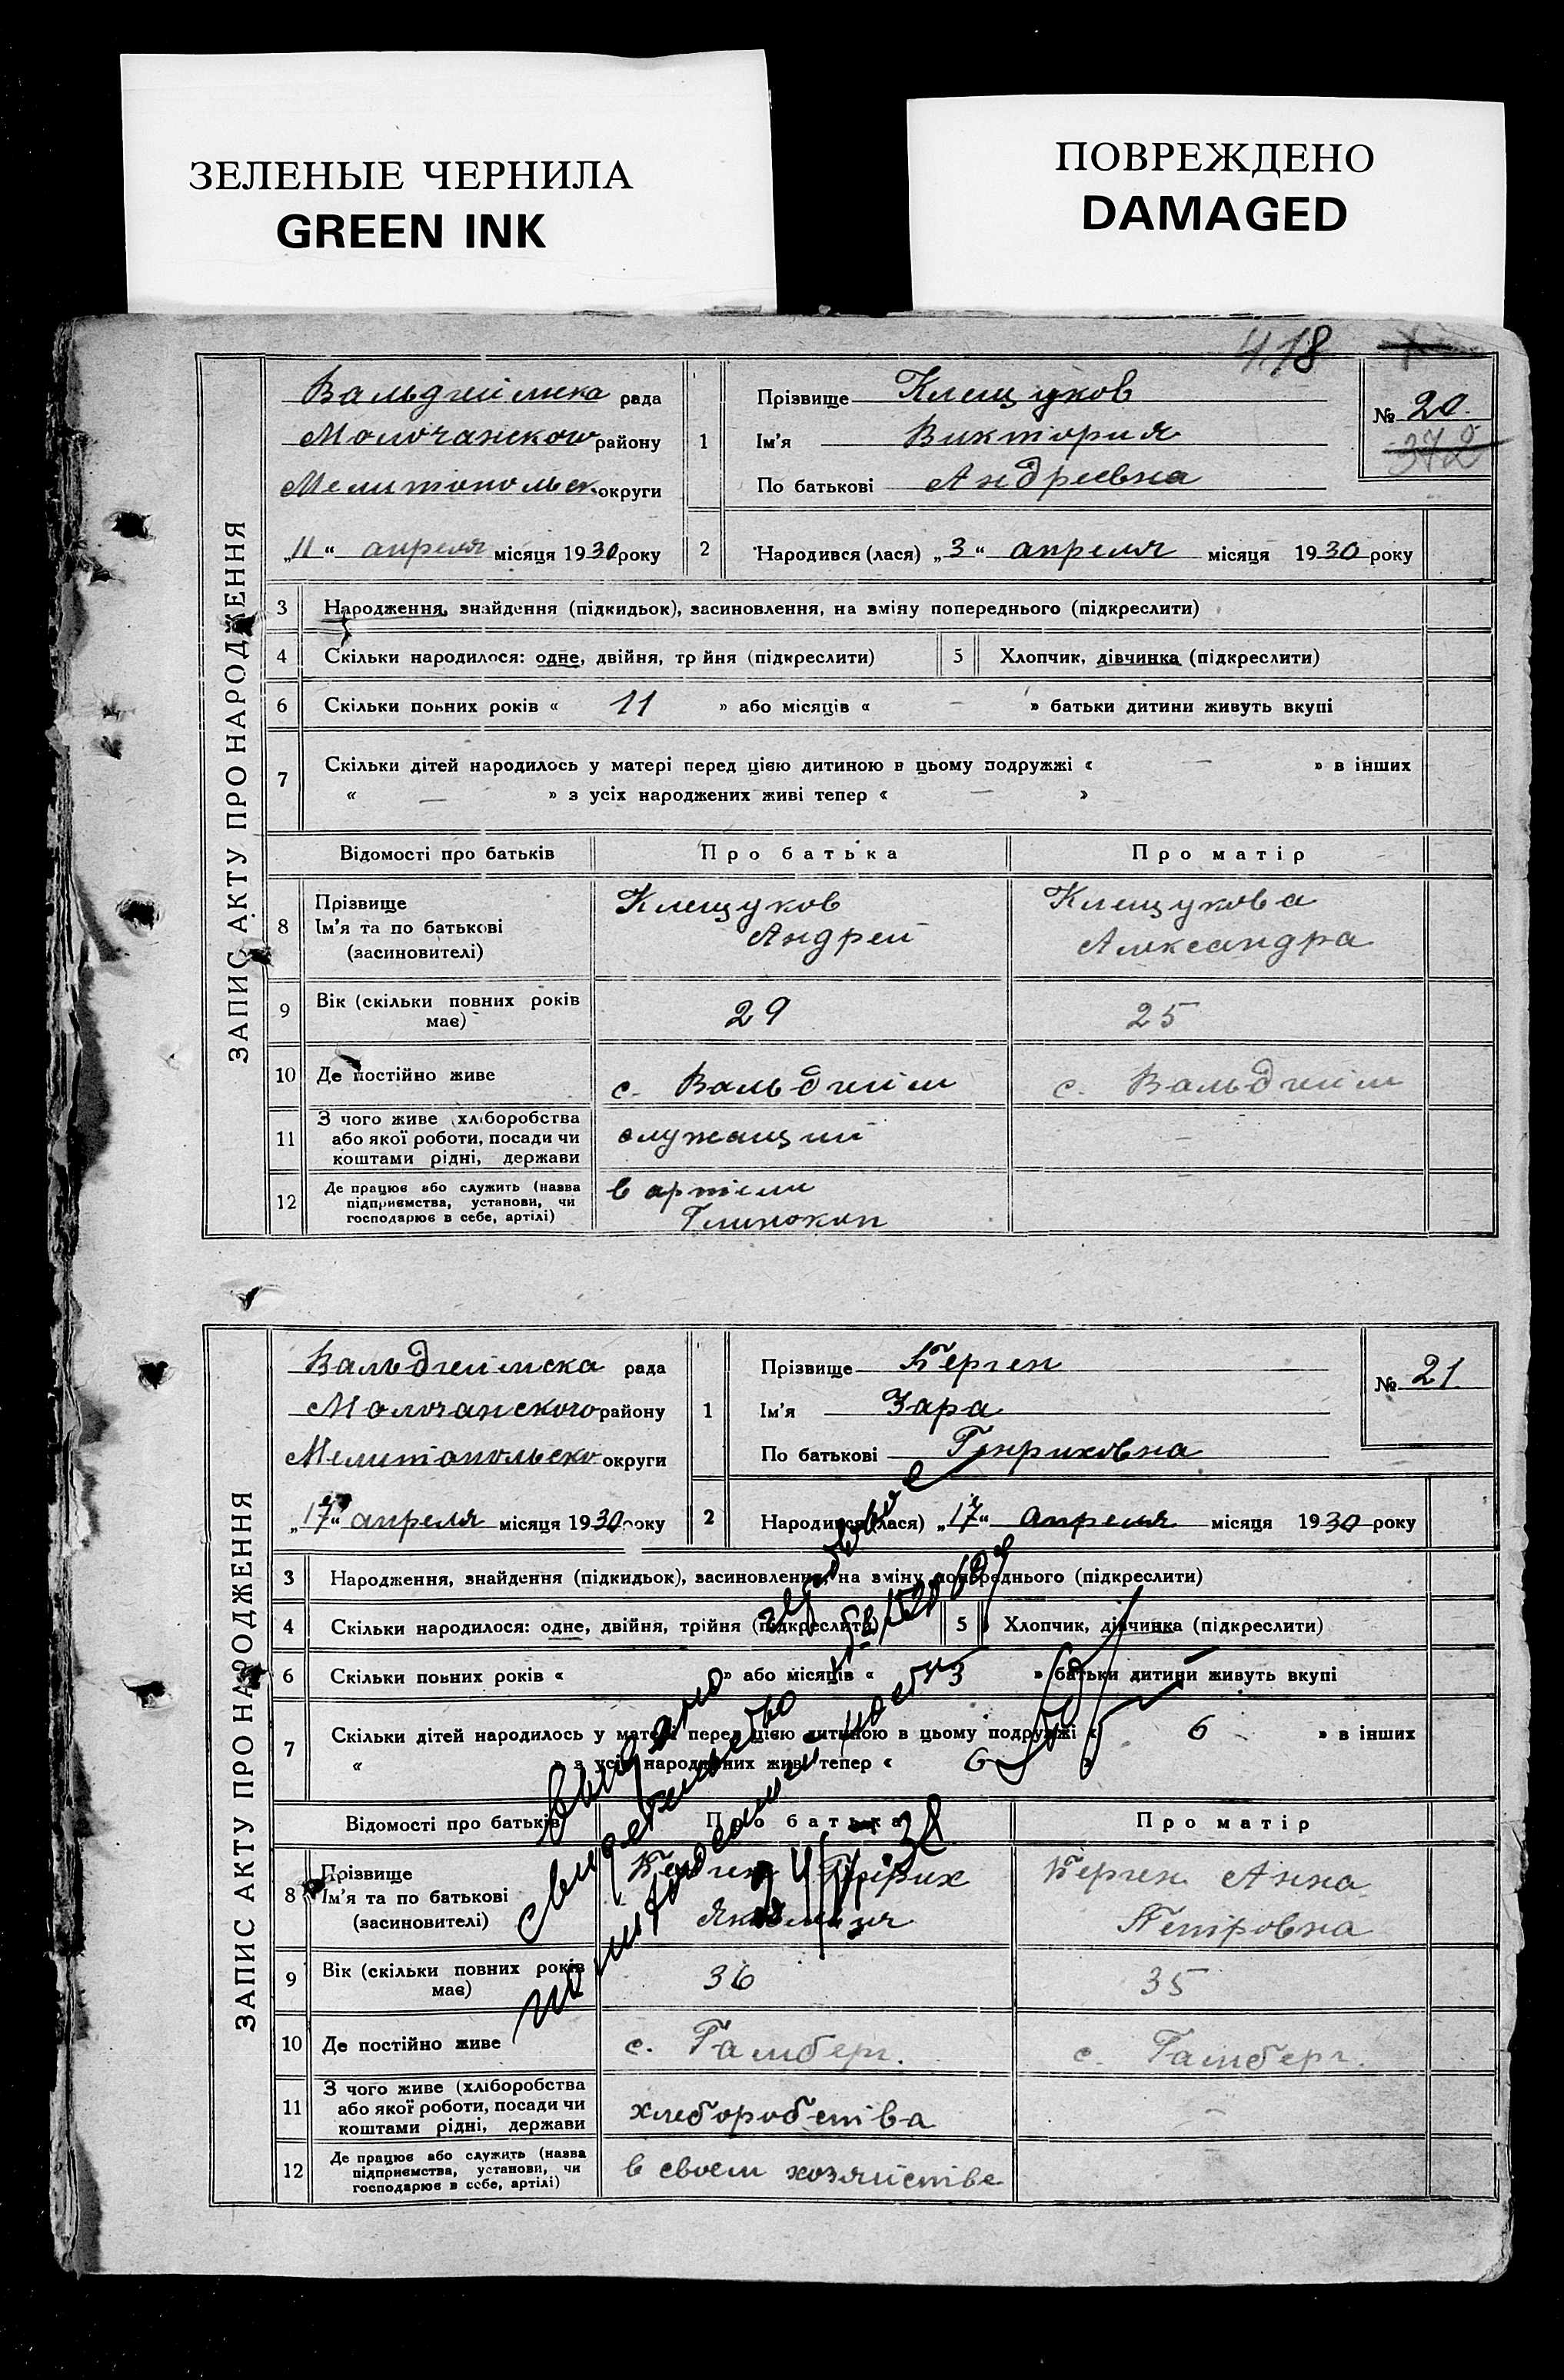 ЗЕЛЕНЫЕ ЧЕРНИЛА
GREEN INK
ПОВРЕЖДЕНО
DAMAGED
418
ЗАПИС АКТУ ПРО НАРОДЖЕННЯ
Вальдгеймска рада
Молочанского району
Мелитопольск. округи
„11“ апреля місяця 1930 року
1
Прізвище Клещуков
Ім'я Виктория
По батькові Андреевна
№ 20.
372
2
Народився (лася) „3“ апреля місяця 1930 року
3 Народження, знайдення (підкидьок), засиновлення, на зміну попереднього (підкреслити)
4 Скільки народилося: одне, двійня, трійня (підкреслити) 5 Хлопчик, дівчинка (підкреслити)
6 Скільки повних років « 11 » або місяців « – » батьки дитини живуть вкупі
7 Скільки дітей народилось у матері перед цією дитиною в цьому подружжі « — » в інших
« — » з усіх народжених живі тепер « — »
Відомості про батьків Про батька Про матір
8 Прізвище
Ім'я та по батькові
(засиновителі)
Клещуков
Андрей
Клещукова
Александра
9 Вік (скільки повних років
має)
29 25
10 Де постійно живе с. Вальдгейм с. Вальдгейм
11 З чого живе (хліборобства
або якої роботи, посади чи
коштами рідні, держави
служащий –
12 Де працює або служить (назва
підприємства, установи, чи
господарює в себе, артілі)
в артели
Глинокоп
ЗАПИС АКТУ ПРО НАРОДЖЕННЯ
Вальдгеймска рада
Молочанского району
Мелитопольско округи
„17“ апреля місяця 1930 року
1
Прізвище Берген
Ім'я Зара
По батькові Генриховна
№ 21.
2
Народився (лася) „17“ апреля місяця 1930 року
3 Народження, знайдення (підкидьок), засиновлення, на зміну попереднього (підкреслити)
4 Скільки народилося: одне, двійня, трійня (підкреслити) 5 Хлопчик, дівчинка (підкреслити)
6 Скільки повних років « » або місяців « » батьки дитини живуть вкупі
7 Скільки дітей народилось у матері перед цією дитиною в цьому подружжі « 6 » в інших
« » з усіх народжених живі тепер « 6 »
Выдано
свидетельство
Відомості про батьків Про батька Про матір
8 Прізвище
Ім'я та по батькові
(засиновителі)
Берген Генрих
Берген Анна
Петровна
9 Вік (скільки повних років
має)
36 35
10 Де постійно живе с. Гамберг. с. Гамберг.
11 З чого живе (хліборобства
або якої роботи, посади чи
коштами рідні, держави
хлеборобства –
12 Де працює або служить (назва
підприємства, установи, чи
господарює в себе, артілі)
в своем хозяйстве